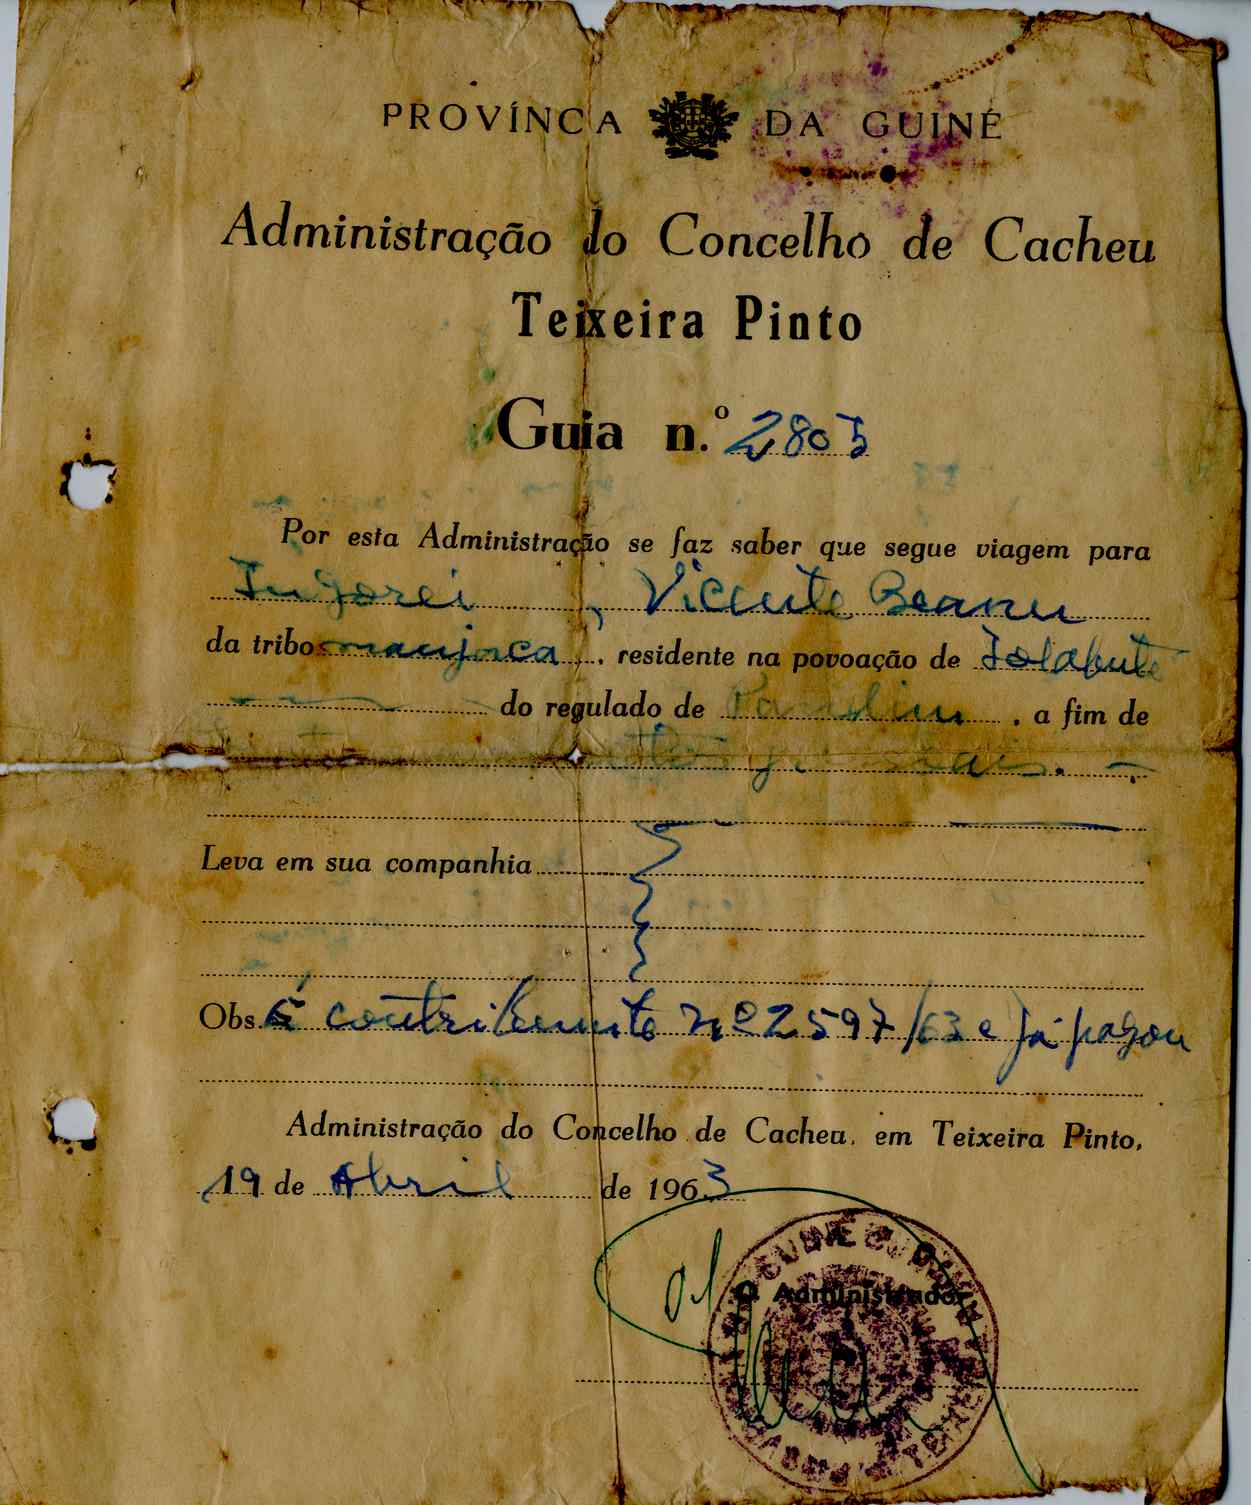 PROVÍNCA DA GUINÉ
Administração do Concelho de Cacheu
Teixeira Pinto
Guia n.º 2805
Por esta Administração se faz saber que segue viagem para
Ingorei, Vicente Beanu
da tribo manjaca, residente na povoação de Jolabute
do regulado de , a fim de
Leva em sua companhia
Obs. É contribuinte nº 2597/63 e já pagou
Administração do Concelho de Cacheu, em Teixeira Pinto,
19 de Abril de 1963
O Administrador